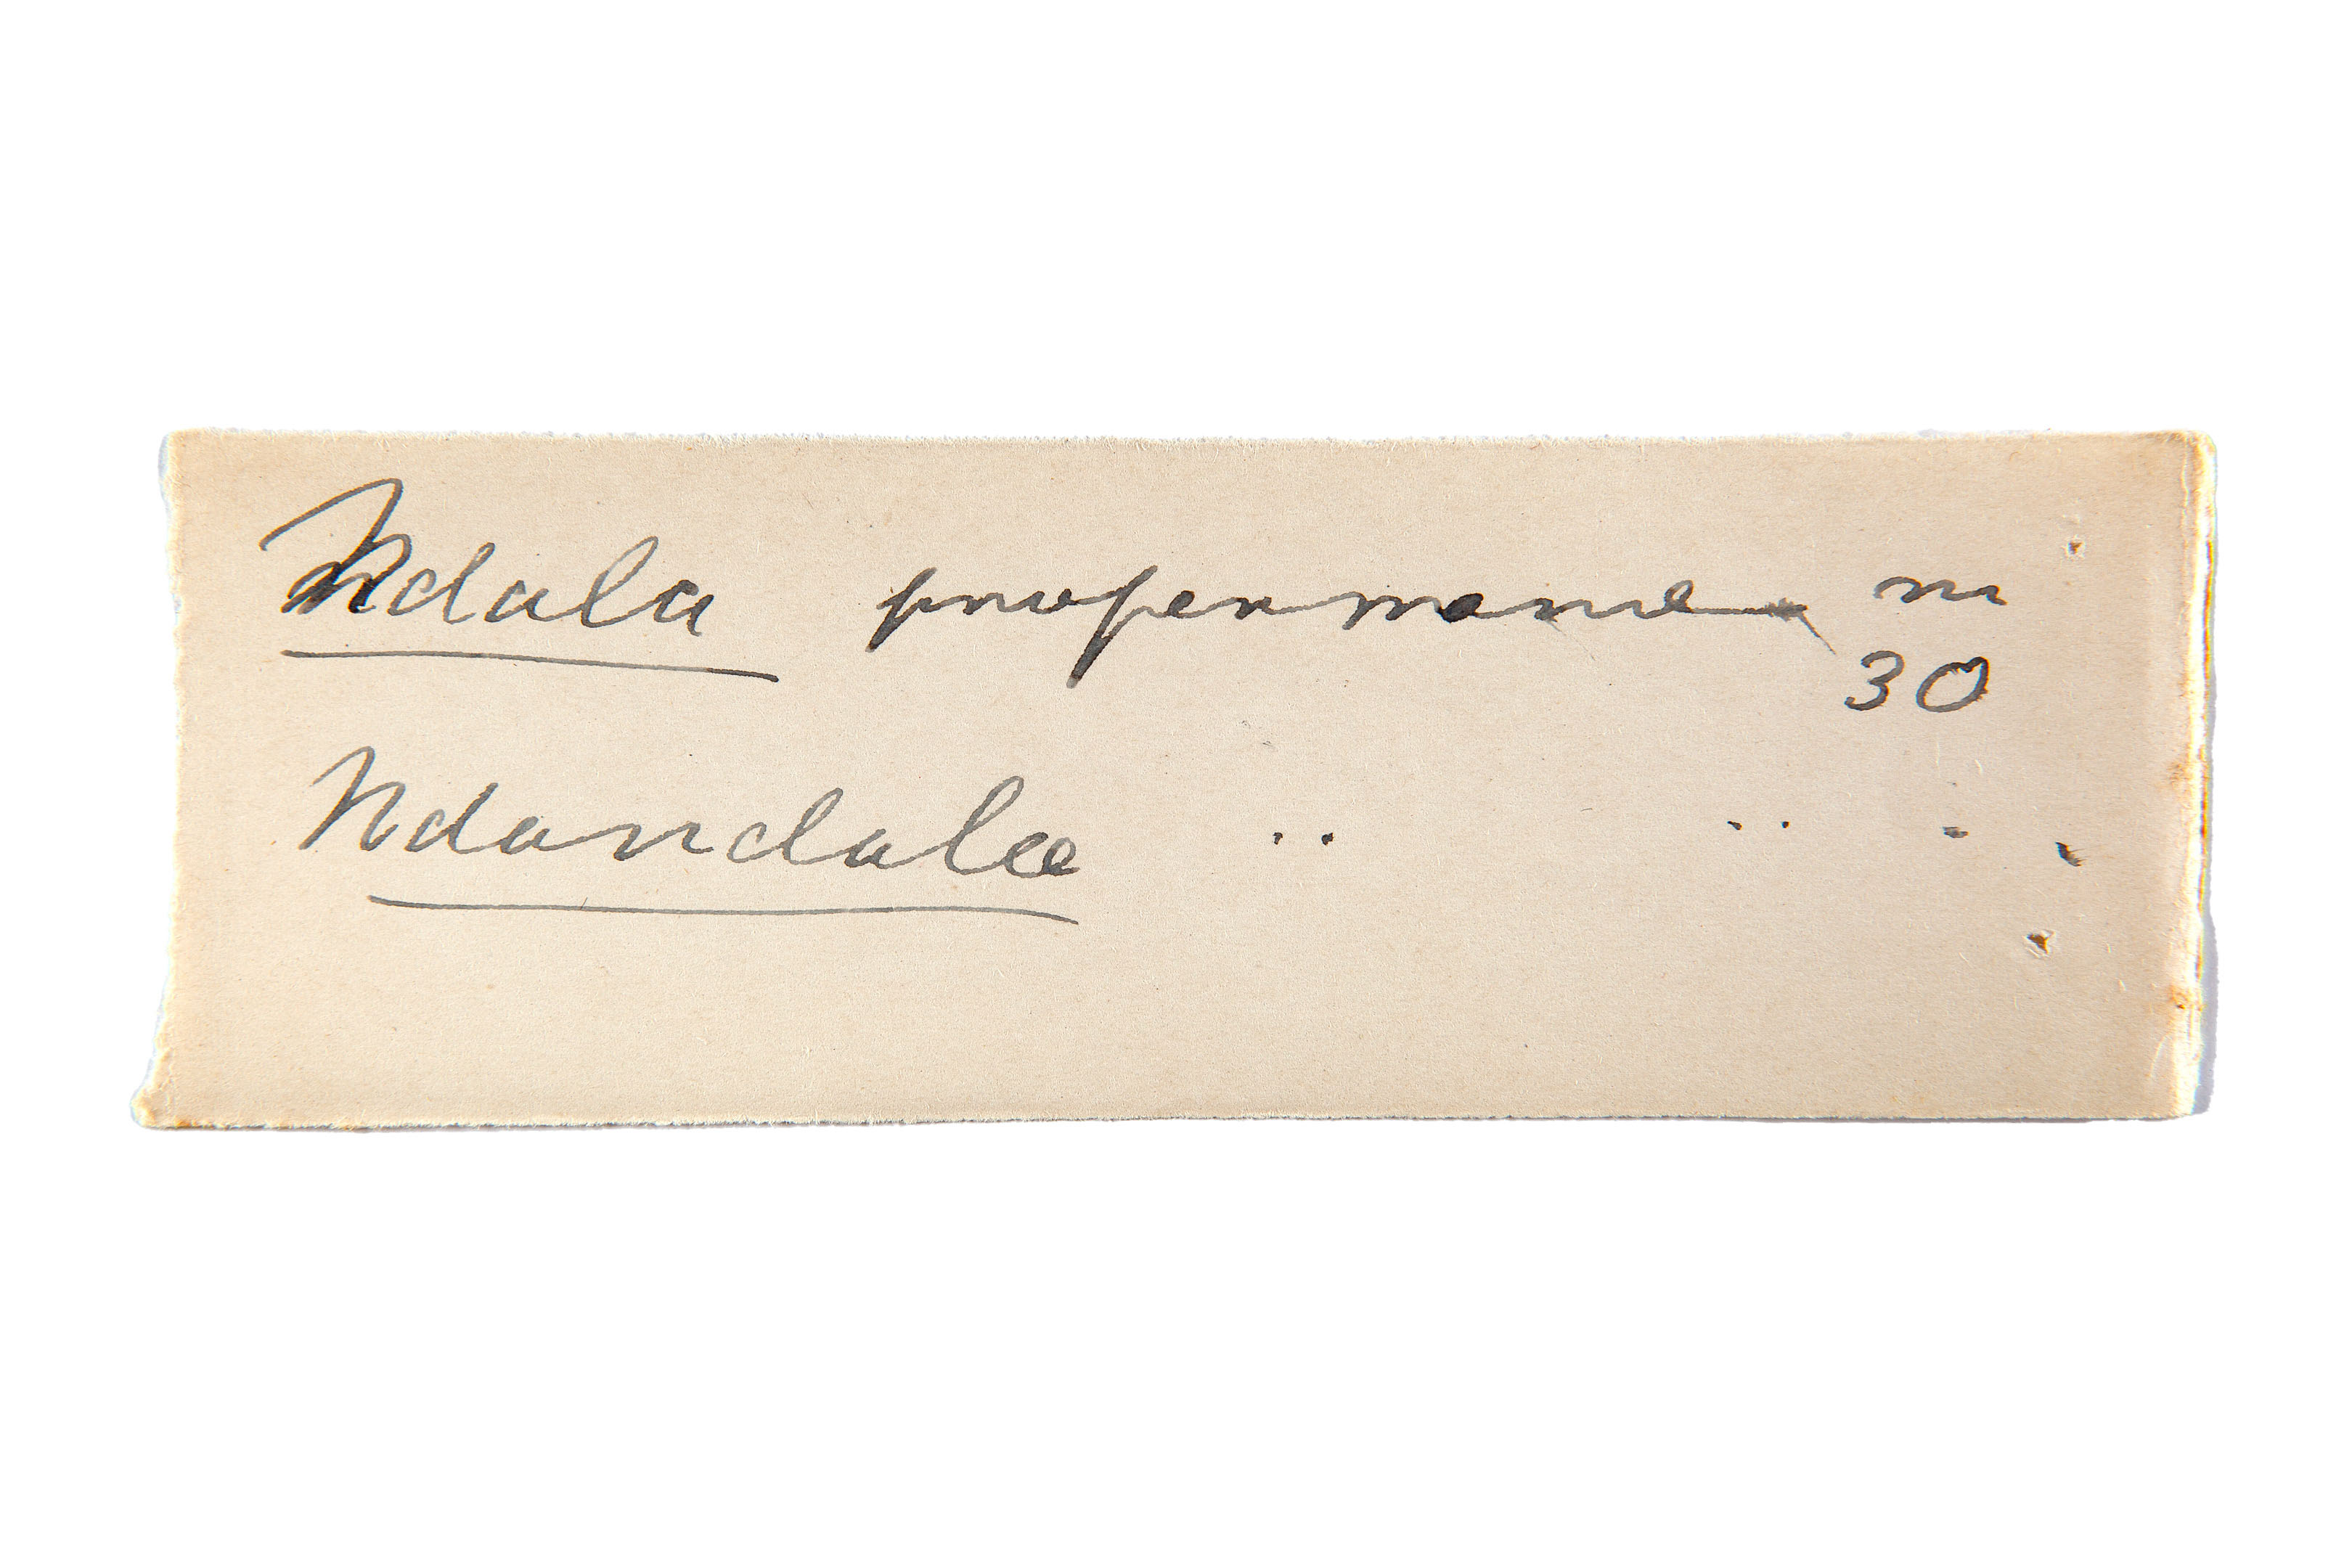 Ndala proper name m
30
Ndandala " " " "